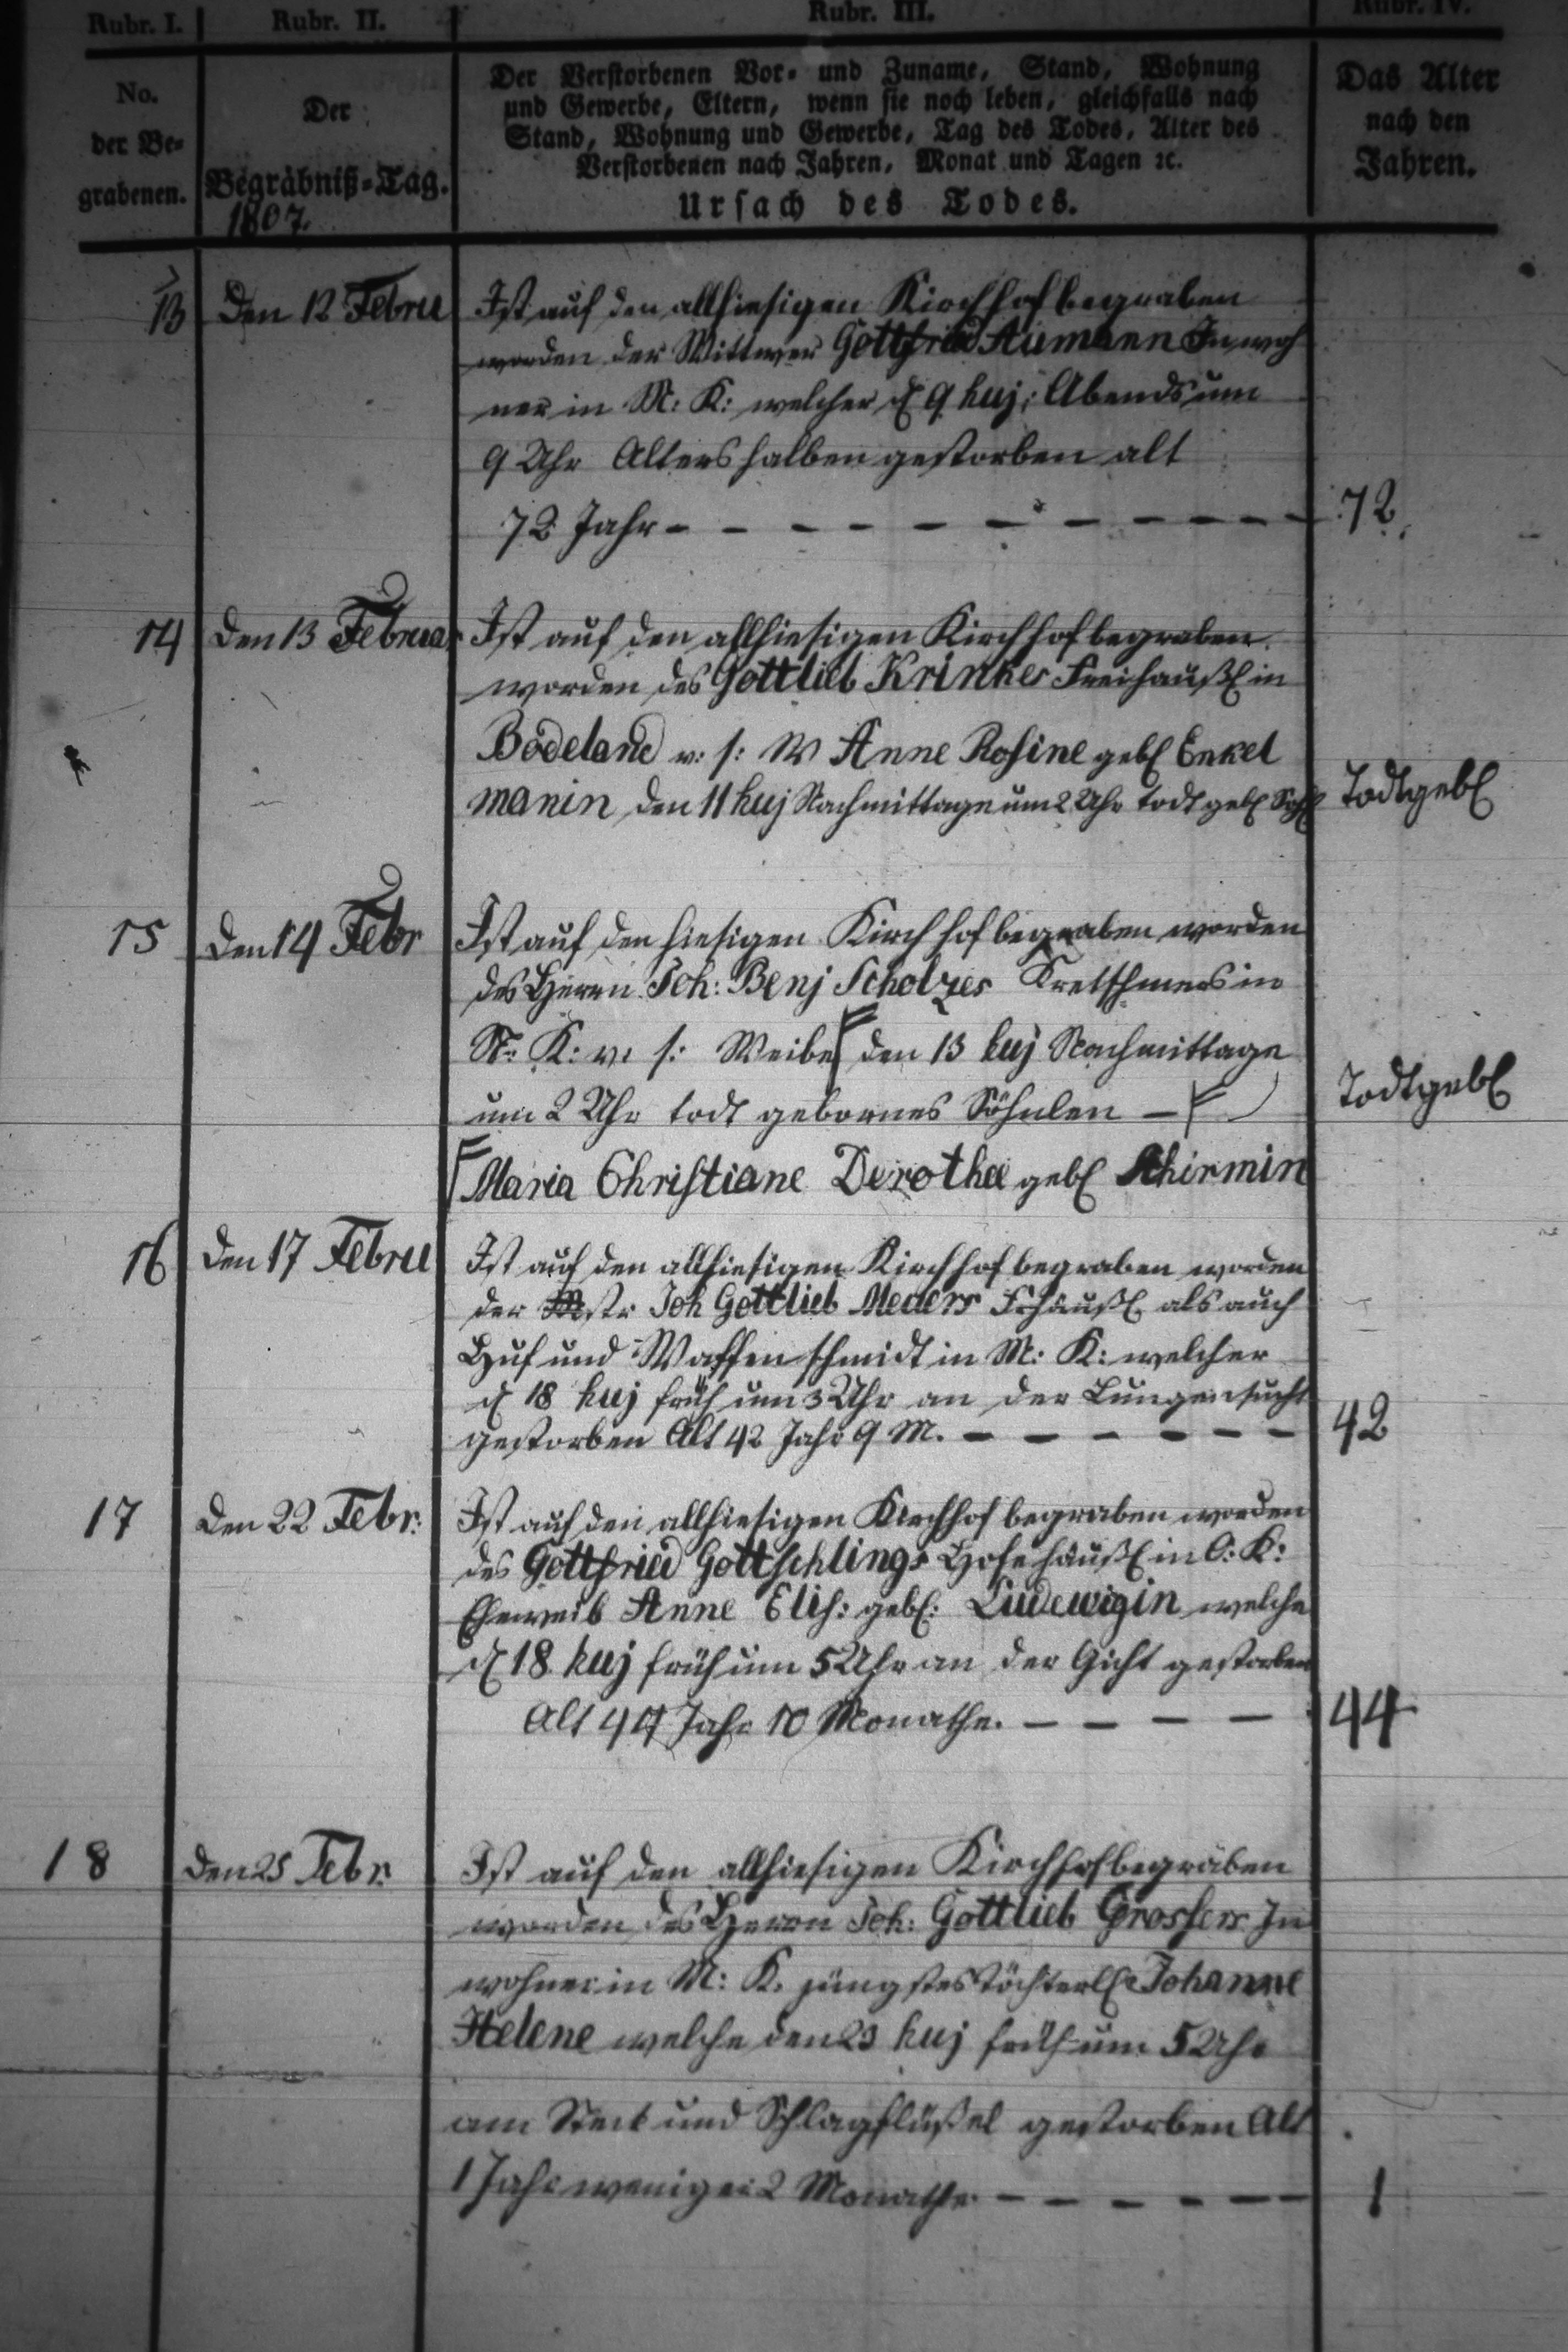 Rubr. I. Rubr. II. Rubr. III. Rubr. IV.
No.
der Be-
grabenen.
Der
Begräbniß-Tag.
1807.
Der Verstorbenen Vor- und Zuname, Stand, Wohnung
und Gewerbe, Eltern, wenn sie noch leben, gleichfalls nach
Stand, Wohnung und Gewerbe, Tag des Todes, Alter des
Verstorbenen nach Jahren, Monat und Tagen ꝛc.
Ursach des Todes.
Das Alter
nach den
Jahren.
13 Den 12 Febru Ist auf den allhiesigen Kirchhof begraben
worden der Wittwer Gottfried Aumann Inwoh
ner in M: K: welcher d 9 huj: Abends um
9 Uhr Alters halben gestorben alt
72 Jahr - - - - - - - - - - 72
14 Den 13 Februar Ist auf den allhiesigen Kirchhof begraben
worden des Gottlieb Krinkes Freihäußl in
Bodeland v: s: W Anne Rosine geb Enkel
manin den 11 huj Nachmittage um 2 Uhr todt geb Sohl Todtgeb
15 Den 14 Febr Ist auf den hiesigen Kirchhof begraben worden
des Herrn Joh: Benj Scholzes Kretschmers in
N: K: v: s: Weibe den 13 huj Nachmittage
um 2 Uhr todt gebornes Söhnlen - Todtgeb
Maria Christiane Dorothee geb Schirmin
16 Den 17 Febru Ist auf den allhiesigen Kirchhof begraben worden
der Mstr Joh Gottlieb Meders Frhäußl als auch
Huf und Waffenschmidt in M: K: welcher
d 18 huj früh um 3 Uhr an der Lungensucht
gestorben Alt 42 Jahr 9 M. - - - - - - 42
17 Den 22 Febr: Ist auf den allhiesigen Kirchhof begraben worden
des Gottfried Gottschlings Hofehäußl in O: K:
Eheweib Anne Elis: geb: Ludewigin welche
d 18 huj früh um 5 Uhr an der Gicht gestorben
Alt 44 Jahr 10 Monathe. - - - - 44
18 Den 25 Febr: Ist auf den allhiesigen Kirchhof begraben
worden des Herrn Joh: Gottlieb Grossers In
wohner in M: K. jüngstes Töchterl Johanne
Helene welche den 23 huj früh um 5 Uhr
am Steck und Schlagflüßel gestorben Alt
1 Jahr weniger 2 Monathe - - - - - - 1